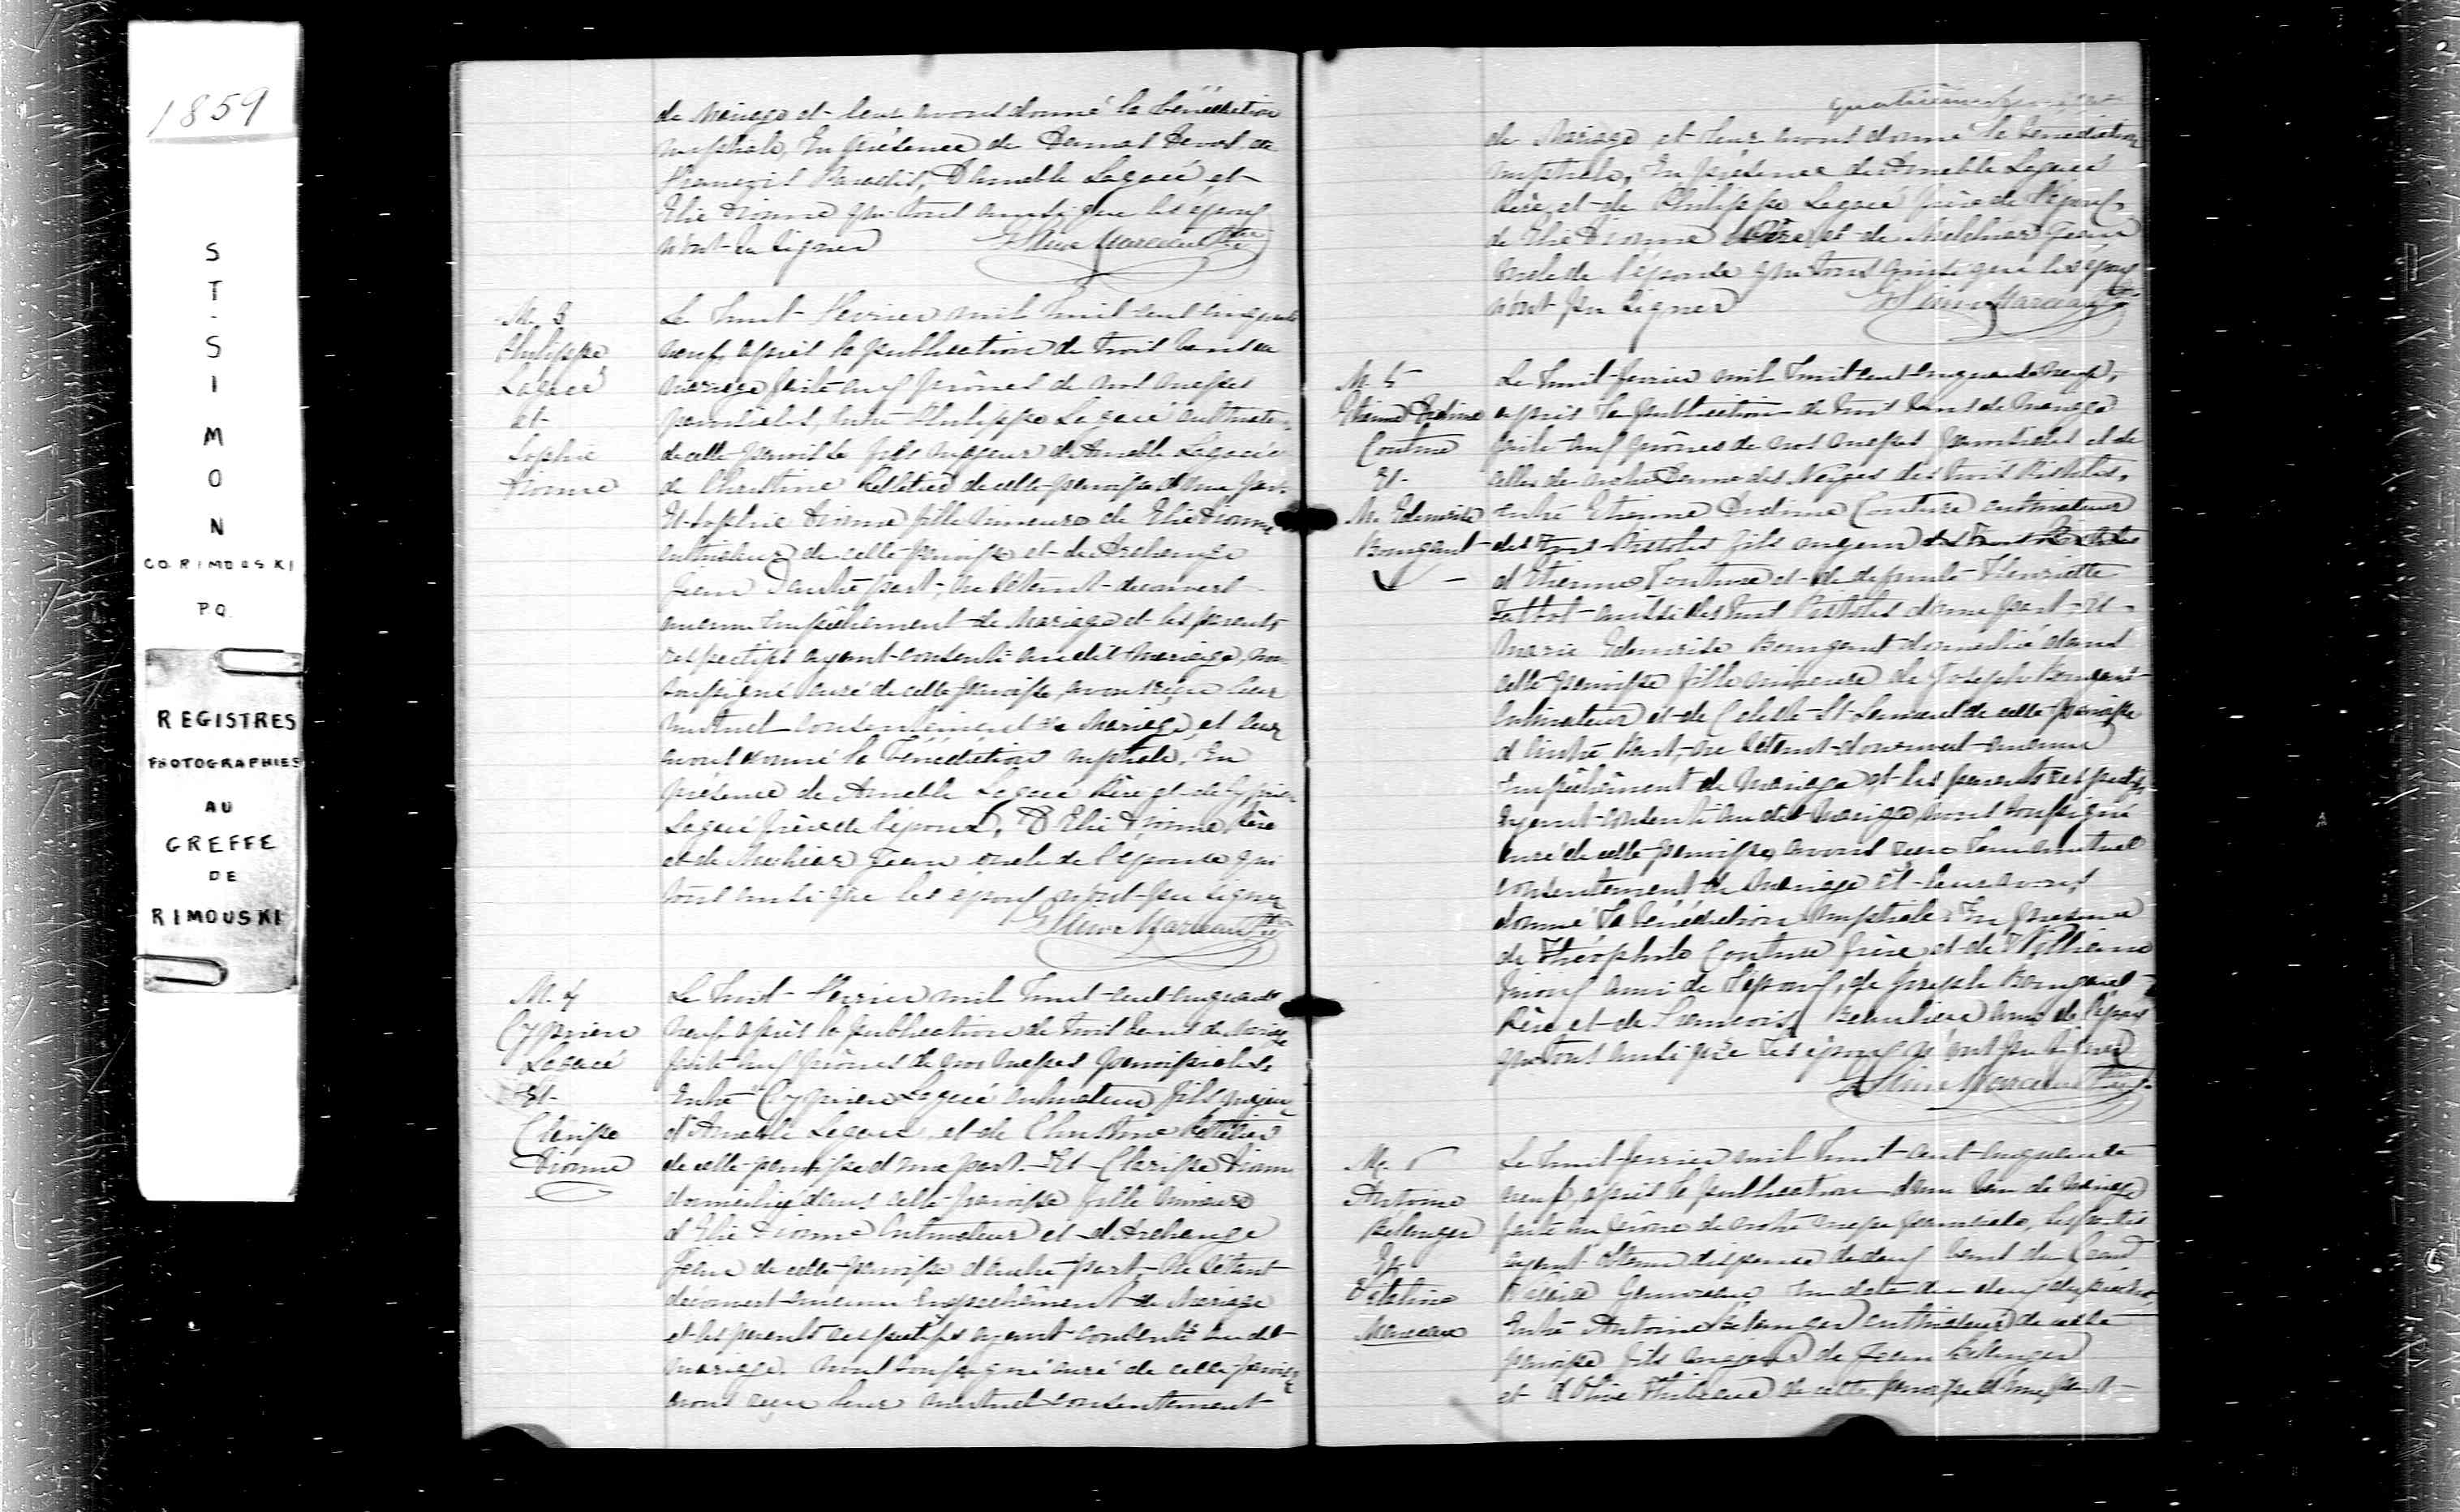 1859
ST-SIMON
CO. RIMOUSKI
P.Q.
REGISTRES
PHOTOGRAPHIES
AU
GREFFE
DE
RIMOUSKI
de Mariage et leur avons donné la bénédiction
nuptiale, En présence de
François Paradis, d'Amable Lagacé et
Elie Dionne qui tous ainsi que les époux
n'ont su signer
Marceau Ptre
M. 3
Philippe
Lagacé
et
Sophie
Dionne
Le huit Fevrier mil huit cent cinquante
neuf, après la publication de trois bans de
mariage faite aux prônes de nos messes
paroissiales, entre Philippe Lagacé cultivateur
de cette paroisse fils majeur d'Amable Lagacé et
de Christine Pelletier de cette paroisse d'une part
Et Sophie Dionne fille mineure de Elie Dionne
cultivateur de cette paroisse et de Archange
Jean d'autre part, ne s'étant découvert
aucun empêchement de Mariage et les parents
respectifs ayant consenti au dit mariage, nous
soussigné curé de cette paroisse, avons reçu leur
mutuel consentement de Mariage, et leur
avons donné la bénédiction nuptiale, En
présence de Amable Lagacé Père et de Cyprien
Lagacé frère de l'époux, d'Elie Dionne, Père
et de Melchior Jean oncle de l'épouse qui
tous ainsi que les époux n'ont pu signer
Marceau Ptre
M. 4
Cyprien
Lagacé
Et
Clarisse
Dionne
Le huit Fevrier mil huit cent cinquante
neuf après la publication de trois bans de Mariage
faite aux prônes de nos messes paroissiales,
Entre Cyprien Lagacé cultivateur fils majeur
d'Amable Lagacé et de Christine Pelletier
de cette paroisse d'une part. Et Clarisse Dionne
domiciliée dans cette paroisse fille mineure
d'Elie Dionne cultivateur et d'Archange
Jean de cette paroisse d'autre part, ne s'étant
découvert aucun empêchement de Mariage
et les parents respectifs ayant consenti au dit
mariage. nous soussigné curé de cette paroisse
avons reçu leur mutuel consentement
quatrième
de Mariage et leur avons donné la bénédiction
nuptiale, En présence de Amable Lagacé
Père et de Philippe Lagacé frère de l'époux
de Elie Dionne Père et de Melchior Jean
oncle de l'épouse qui tous ainsi que les époux
n'ont pu signer
Marceau Ptre
M. 5
Etienne
Couture
Et
M. Edmrise
Bourgault
Le huit fevrier mil huit cent cinquante neuf,
après la publication de trois bans de mariage
faite aux prônes de nos messes paroissiales et de
celles de notre Dame des Neiges des trois Pistoles,
entre Etienne Couture cultivateur
des trois Pistoles fils majeur
d'Etienne Couture et de defunte Henriette
Talbot aussi des trois Pistoles d'une part, Et
Marie Edmrise Bourgault domiciliée dans
cette paroisse fille mineure de Joseph Bourgault
Cultivateur et de Celeste St Laurent de cette paroisse
d'autre Part, ne s'étant découvert aucun
empêchement de mariage et les parents respectifs
ayant consenti au dit mariage, nous soussigné
curé de cette paroisse, avons reçu leur mutuel
consentement de Mariage et leur avons
donné la bénédiction nuptiale. En présence
de Théophile Couture frère et de
ami de l'époux, de Joseph Bourgault
Père et de François Beaulieu ami de l'épouse
qui tous ainsi que les époux n'ont pu signer
Marceau Ptre
M.
Antoine
Belanger
Et
Marceau
Le huit fevrier mil huit cent cinquante
neuf, après la publication d'un ban de mariage
faite au prône de notre messe paroissiale, les parties
ayant obtenu dispense de deux bans du Grand
Vicaire Gauvreau en date du
Entre Antoine Bélanger cultivateur de cette
paroisse fils majeur de Jean Bélanger
et d'Olive de cette paroisse d'une part